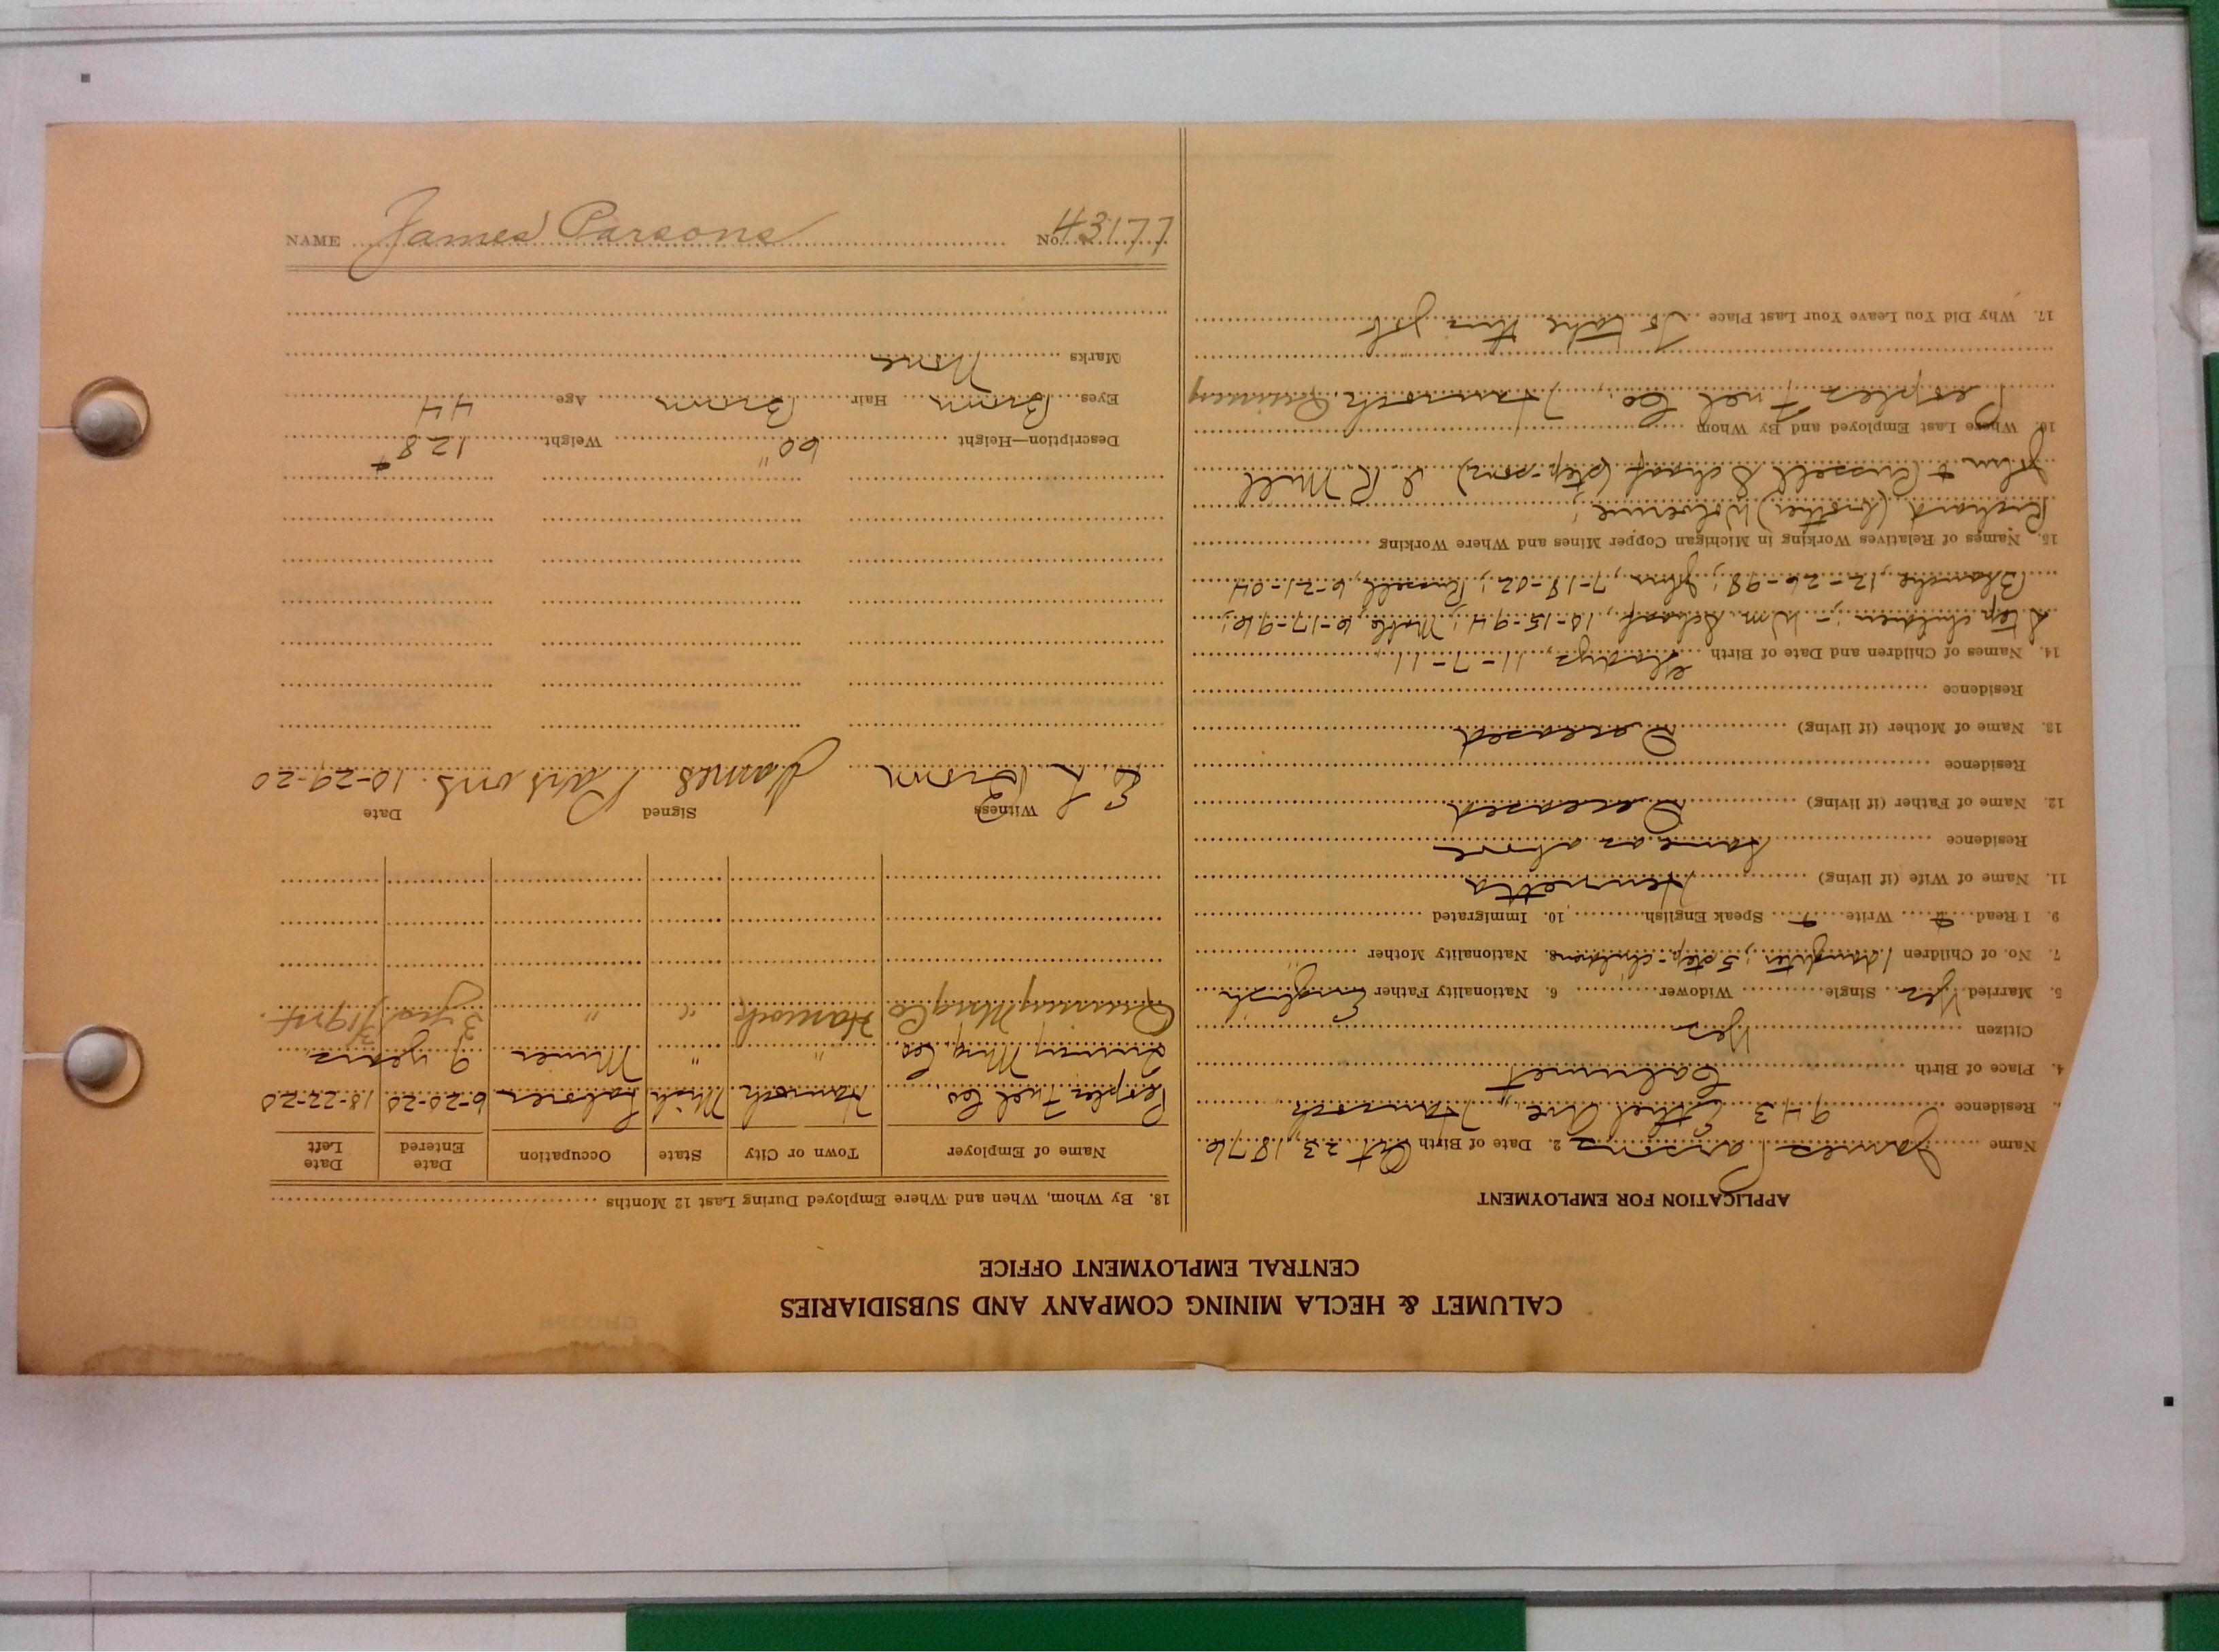 CALUMET & HECLA MINING COMPANY AND SUBSIDIARIES
CENTRAL EMPLOYMENT OFFICE
APPLICATION FOR EMPLOYMENT
Name James Parsons 2. Date of Birth Oct 23, 1876
Residence 943 Ethel Ave., Hancock
4. Place of Birth Calumet
Citizen Yes
5. Married Yes Single Widower 6. Nationality Father English
7. No. of Children 1 daughter; 5 step-children 8. Nationality Mother "
9. I Read Write Speak English 10. Immigrated
11. Name of Wife (if living) Henrietta
Residence same as above
12. Name of Father (if living) Deceased
Residence
13. Name of Mother (if living) Deceased
Residence
14. Names of Children and Date of Birth Gladys, 11-7-11
Step children;- Wm. Schaaf, 10-15-94; 6-17-96;
Blanche, 12-26-98; John, 7-18-02; Russell, 6-21-04
15. Names of Relatives Working in Michigan Copper Mines and Where Working
Richard (brother) Wolverine;
John & Russell Schaaf (step-sons) I R Mill
16. Where Last Employed and By Whom
Peoples Fuel Co., Hancock. Quincy
17. Why Did You Leave Your Last Place To take this job
18. By Whom, When and Where Employed During Last 12 Months
Name of Employer Town or City State Occupation Date Entered Date Left
Peoples Fuel Co Hancock Mich Laborer 6-20-20 10-22-20
Quincy Mng. Co. " " Miner 9 years
Quincy Mng Co Hancock " "
Witness Signed Date
E L Brown James Parsons. 10-29-20
Description—Height 60" Weight 128#
Eyes Brown Hair Brown Age 44
Marks None
NAME James Parsons No. 43177